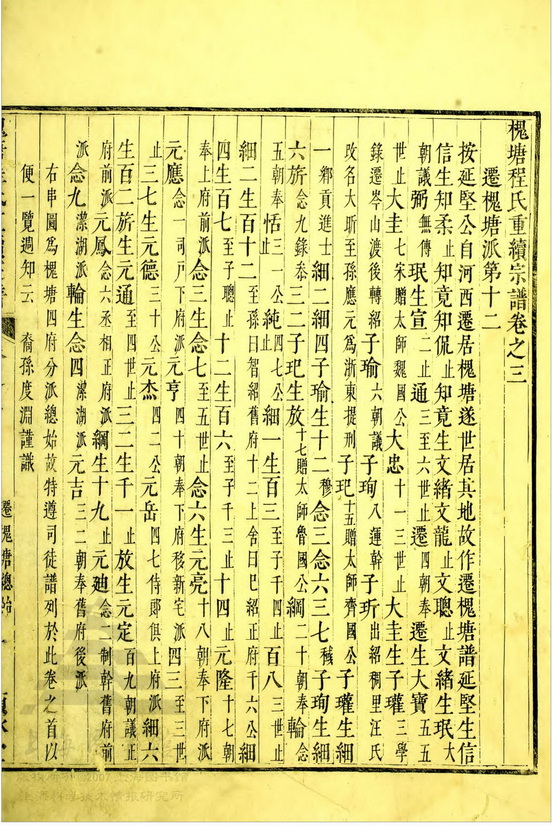 槐塘程氏重續宗譜卷之三
遷槐塘派第十二
按延堅公自河西遷居槐塘遂世居其地故作遷槐塘譜延堅生信
信生知柔止知竟知侃止知竟生文緒文龍止文聰止文緒生珉大
朝議弼無傳珉生宣二止通三至六世止遷四朝奉遷生大寶五五
世止大圭七宋贈太師魏國公大忠十一三世止大圭生子瓘三學
錄遷岑山渡後轉紹子瑜六朝議子珣八運幹子玠出紹稠里汪氏
改名大昕至孫應元爲浙東提刑子玘十五贈太師齊國公子瓘生細
一鄉貢進士細二細四子瑜生十二穆念三念六三七子珣生細
六旂念九錄叅三二子玘生放十七贈太師魯國公綱二十朝奉輪念
五朝奉恬止三一公純止四七公細一生百三至子千四止百八三世止
細二生百十二至孫日智紹舊府十二上舍日巳紹正府千六公細
四生百七至子聰止十二生百六至子千三止十四止元隆十七朝
奉上府前派念三生念七至五世止念六生元亮十八朝奉下府派
元應念一司戸下府派元亨四十朝奉下府移新宅派四三至三世
止三七生元德三十公元杰四二公元岳四七侍郎俱上府派細六
生百二旂生元通至四世止三二生千一止放生元定百九朝議正
府前派元鳳念六丞相正府派綱生十九止元廸念二制幹舊府前
派念九潔湖派輪生念四潔湖派元吉三二朝奉舊府後派
右串圖爲槐塘四府分派總始故特遵司徒譜列於此卷之首以
便一覽週知云　裔孫度淵謹識
遷槐塘總始